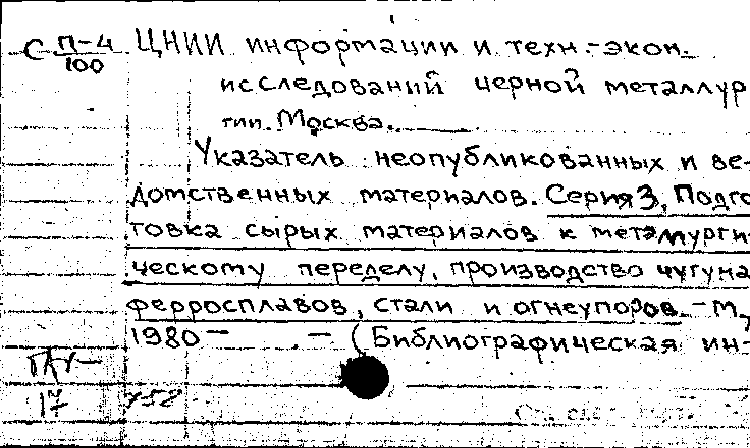 С П-4/100 ЦНИИ информации и техн.-экон.
исследований черной металлур
гии. Москва.
Указатель неопубликованных и ве-
домственных материалов. Серия 3, Подго
товка сырых материалов к металлурги-
ческому переделу, производство чугуна
ферросплавов, стали и огнеупоров. - М,
1980 - . - (Библиографическая ин-
17 752